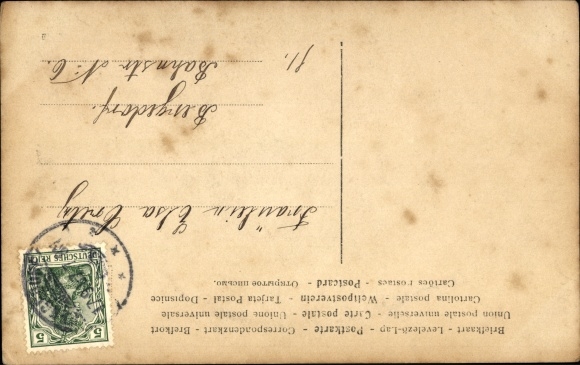 Briefkaart - Levelező-Lap - Postkarte - Correspondenzkart - Brefkort
Union postale universelle - Carte postale - Unione postale universale
Cartolina postale - Weltpostverein - Tarjeta Postal - Dopisnice
Cartões Postaes - Postcard - Открытое письмо.
Fräulein Elsa
Bergedorf.
Bahnstr № 6.
II.
DEUTSCHES REICH
5 5